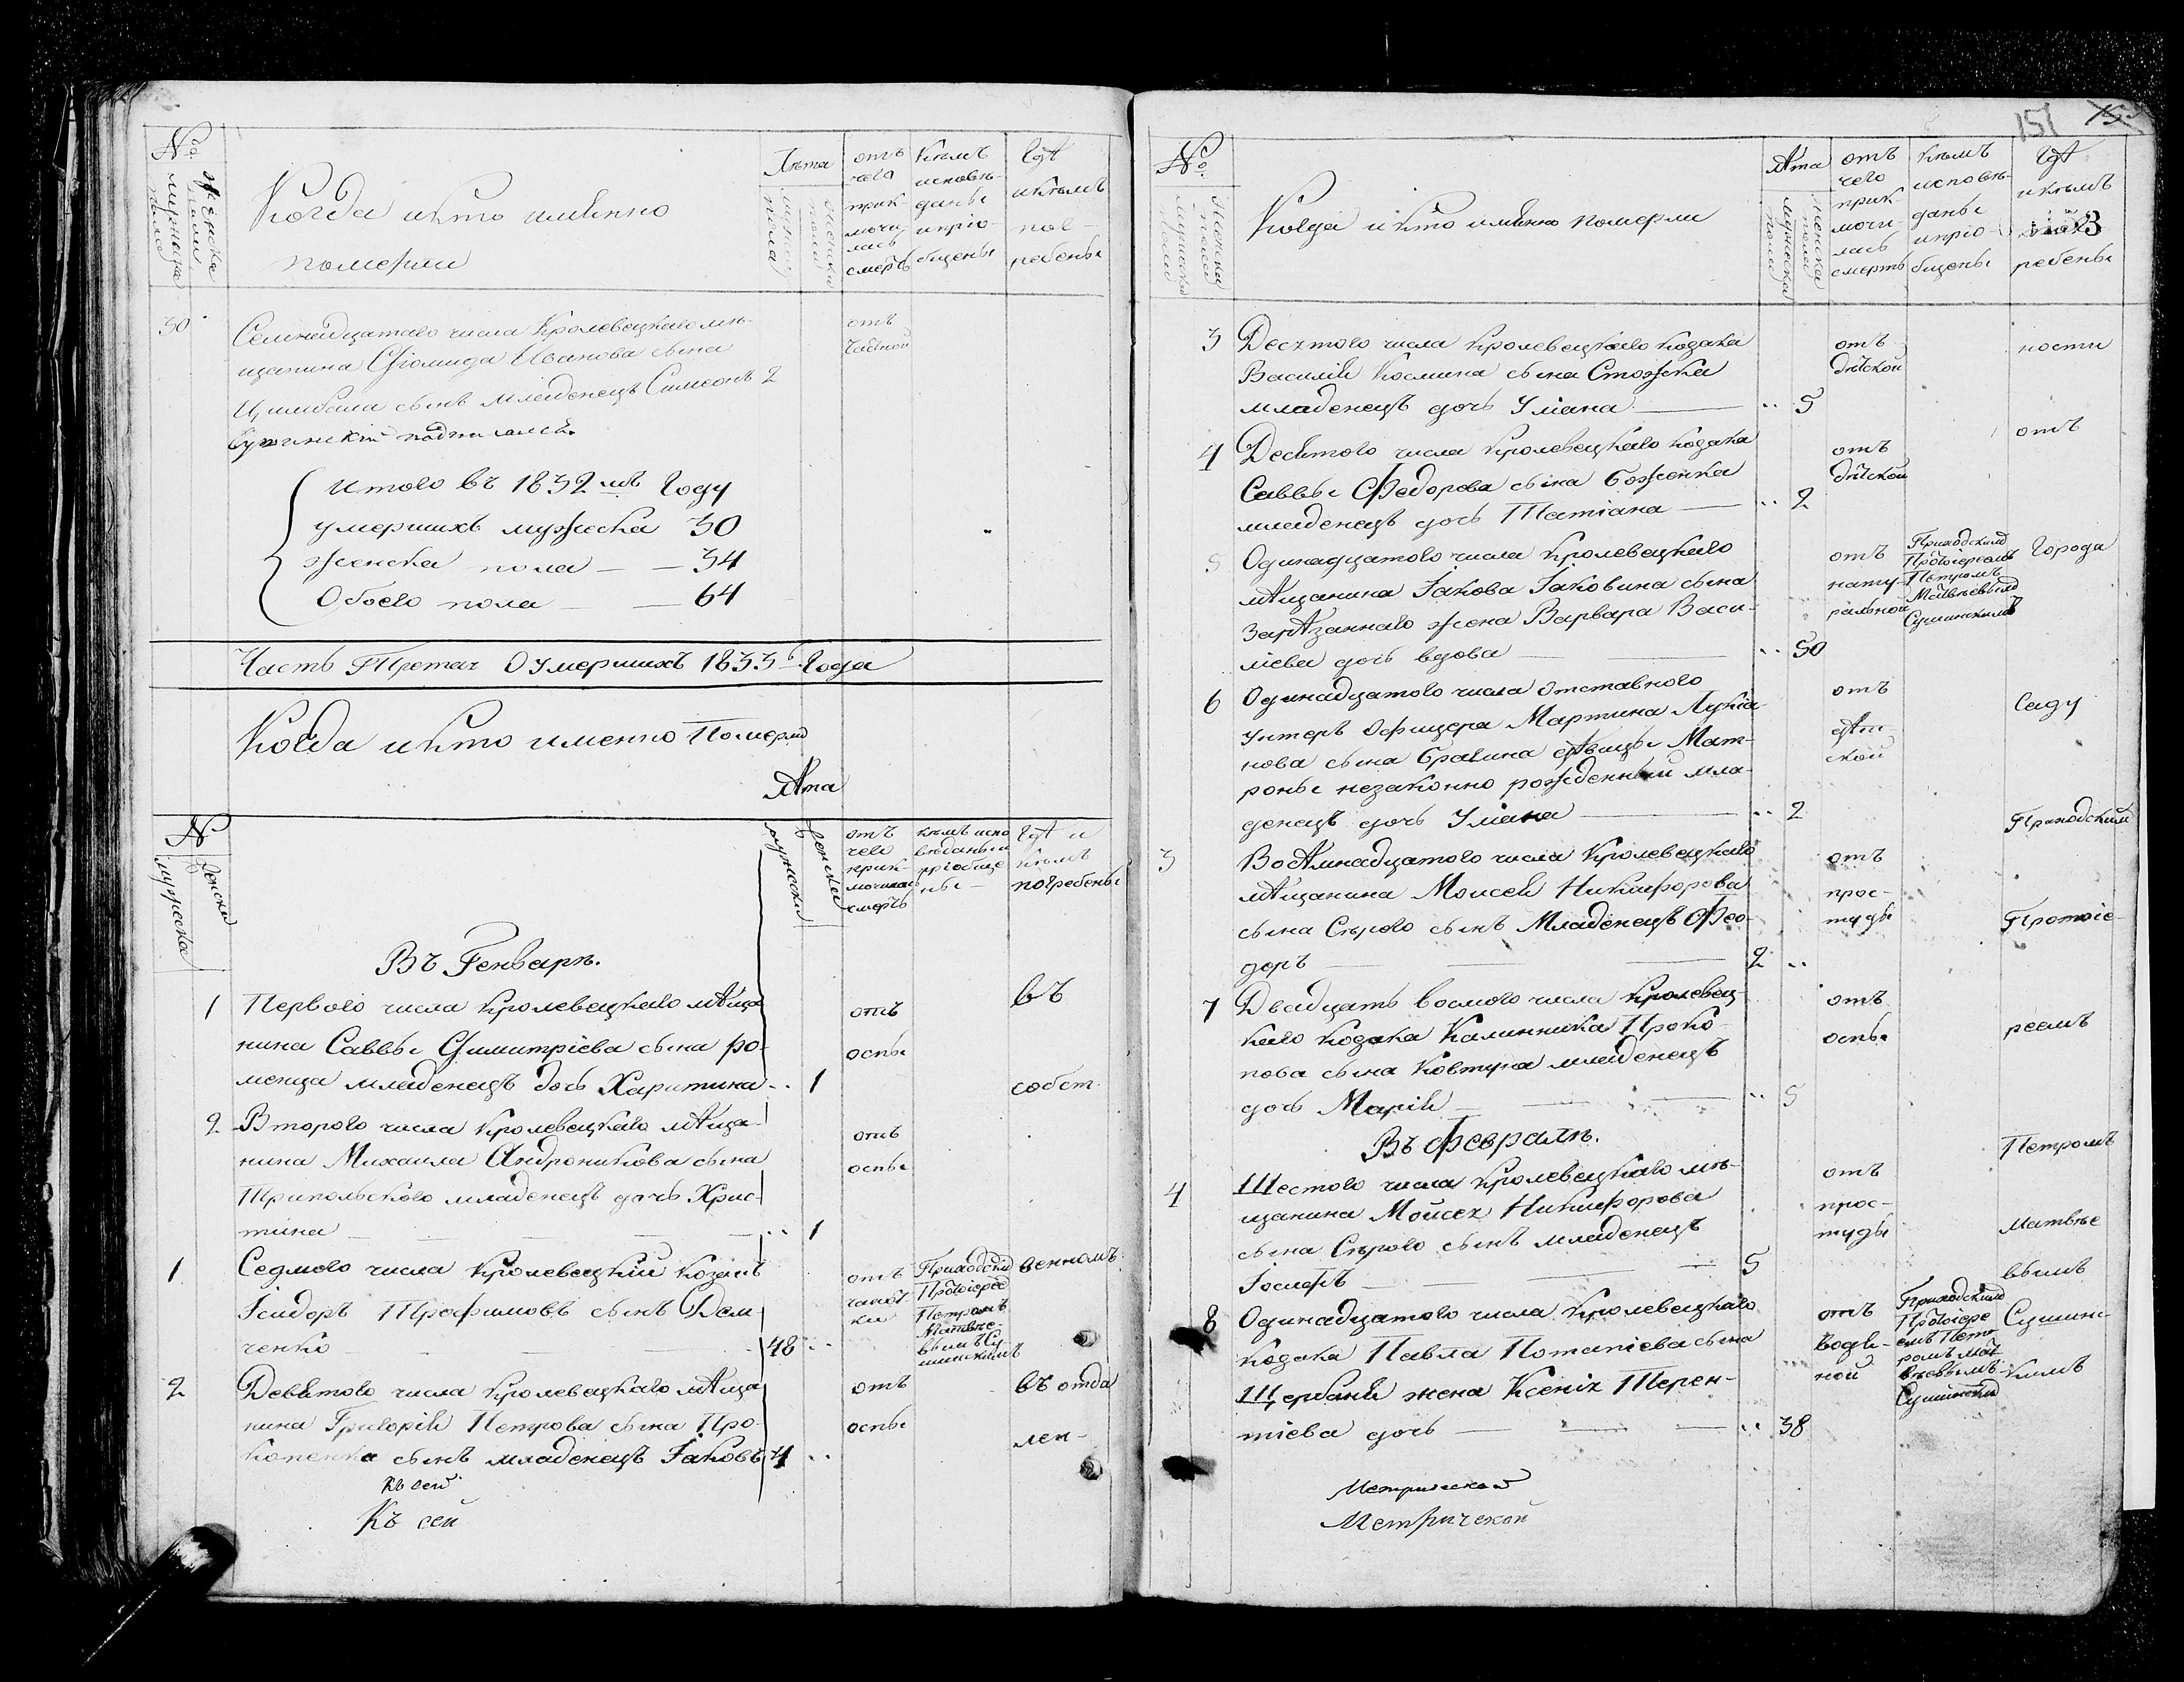 №
мужеска пола
женска пола
Когда и кто именно
померли
Лѣта
мужеска пола
женска пола
отъ чего приключилась смерть
кѣмъ исповѣданы и пріобщены
гдѣ и кѣмъ погребены
30
Семнадцатаго числа Кролевецкаго мѣ-
щанина Діомида Иванова сына
Цимбала сынъ младенецъ Симеонъ 2
отъ
подписался.
Итого въ 1832мъ году
умершихъ мужеска 30
женска пола — — 34
Обоего пола — — 64
Часть Третая О умершихъ 1833го Года
Когда и кто именно Померли
Лѣта
№
мужеска
женска
мужеска
женска
отъ чего приключилась смерть
кѣмъ исповѣданы и пріобщены
гдѣ и кѣмъ погребены
Въ Генварѣ.
1 Первого числа Кролевецкаго мѣща-
нина Саввы Димитріева сына Ро-
менца младенецъ дочь Харитина .. 1
отъ
оспы
въ
собст-
2 Второго числа Кролевецкаго мѣща-
нина Михаила Андроникова сына
Трипольского младенецъ дочь Хрис-
тина — — — .. 1
отъ
оспы
1 Седмого числа Кролевецкій козакъ
Ісидоръ Трофимовъ сынъ Дем-
ченко — — — 48 ..
отъ
Приходскимъ
Протоіерее
Петромъ
Матвѣе-
вымъ Су-
шинскимъ
венномъ
2 Девятого числа Кролевецкаго мѣща
нина Григорія Петрова сына Про-
копенка сынъ младенецъ Іаковъ 4 ..
отъ
оспы
въ отда
лен-
Къ сей
Къ сей
151
№
мужеска пола
женска пола
Когда и кто именно померли
Лѣта
мужеска пола
женска пола
отъ чего приключилась смерть
кѣмъ исповѣданы и пріобщены
гдѣ и кѣмъ погребены
3 Десятого числа Кролевецкаго козака
Василія Космина сына Стожка
младенецъ дочь Уліана — .. 5
отъ
дѣтской
ности
4 Десятого числа Кролевецкаго козака
Саввы Федорова сына Боженка
младенецъ дочь Татіана — .. 2
отъ
дѣтской
отъ
5 Одинадцатого числа Кролевецкаго
мѣщанина Іакова Іаковина сына
Зарѣзаннаго жена Варвара Васи-
ліева дочь вдова — — .. 50
отъ
нату-
ральной
Приходскимъ
Протоіереемъ
Петромъ
Матвѣевымъ
Сушинскимъ
города
6 Одинадцатого числа отставного
унтеръ офицера Мартина Лукіа-
нова сына Брагина дѣвицы Мат-
роны незаконно рожденный мла-
денецъ дочь Уліана — .. 2
отъ
дѣт-
ской
саду
Приходскимъ
3 Восѣмнадцатого числа Кролевецкаго
мѣщанина Моисея Никифорова
сына Сѣрого сынъ Младенецъ Фео-
доръ — — — 2 ..
отъ
прос-
туды
Протоіе-
7 Двадцать восмого числа Кролевец-
каго козака Калинника Проко-
пова сына Ковтуна младенецъ
дочь Марія — — — .. 5
отъ
оспы
реемъ
Въ Февралѣ.
Петромъ
4 Шестого числа Кролевецкаго мѣ-
щанина Мойсея Никифорова
сына Сѣрого сынъ младенецъ
Іосифъ — — — 5
отъ
прос-
туды
Матвѣе
вымъ
8 Одинадцатого числа Кролевецкаго
козака Павла Потапіева сына
Щербаня жена Ксенія Терен-
тіева дочь — — — .. 38
отъ
водя-
ной
Приходскимъ
Протоіере
емъ Пет-
ромъ Мат
вѣевымъ
Сушински
Сушинс-
кимъ
Метрической
Метрической